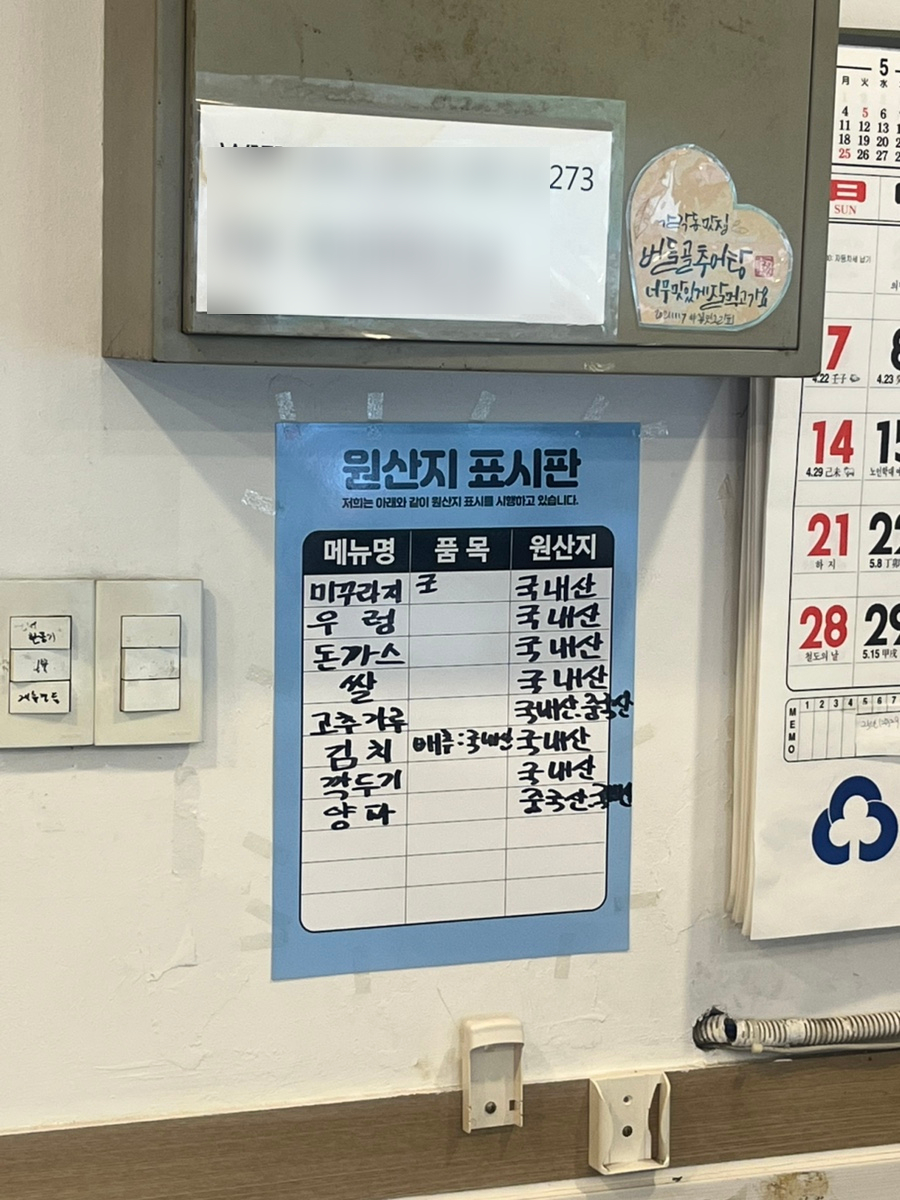 273
맛집
버들골추어탕
너무맛있게잘먹고가요
원산지 표시판
저희는 아래와 같이 원산지 표시를 시행하고 있습니다.
메뉴명 품 목 원산지
미꾸라지 국 국내산
우 렁 국내산
돈까스 국내산
쌀 국내산
고추가루 국내산.중국산
김 치 배추:국내산 국내산
깍두기 국내산
양 파 중국산.국내산
환풍기
5
月 火 水
4 5 6
11 12 13
18 19 20
25 26 27
日
SUN
자동차세 납기
7 8
4.22 壬子 4.23
14 15
4.29 己未
21 22
하 지 5.8 丁卯
28 29
철도의 날 5.15 甲戌
MEMO
1 2 3 4 5 6 7